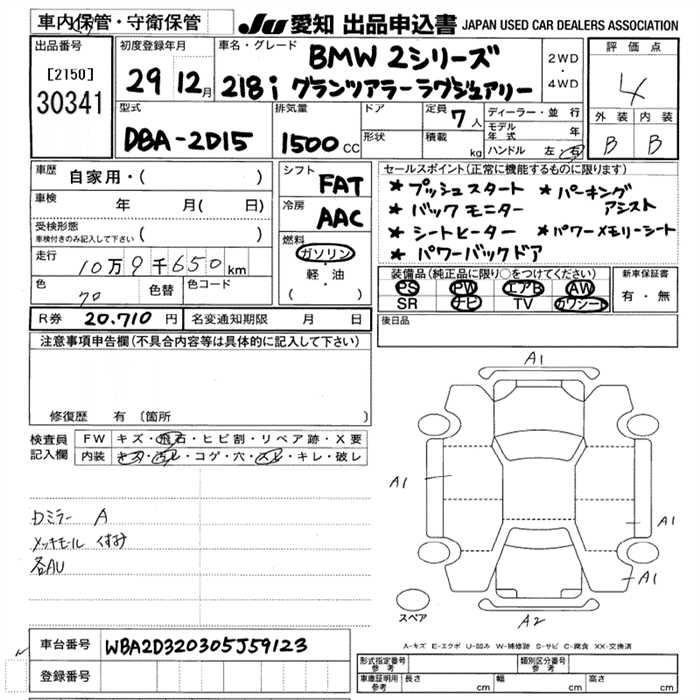 車内保管・守衛保管
JU 愛知 出品申込書 JAPAN USED CAR DEALERS ASSOCIATION
出品番号
[2150]
30341
初度登録年月
29 12月
車名・グレード
BMW 2シリーズ
218i グランツアラーラグジュアリー
2WD
・
4WD
評価点
4
外装 内装
B B
型式
DBA-2D15
排気量
1500 CC
ドア
形状
定員 7 人
積載 kg
ディーラー・並行
モデル年式 年
ハンドル 左・右
車歴
自家用・( )
車検 年 月( 日)
受検形態
車検付きのみ記入して下さい ( )
走行
10万9千650km
色 色替 色コード
シフト
FAT
冷房
AAC
燃料
ガソリン
軽・油
( ・ )
セールスポイント(正常に機能するものに限ります)
★ プッシュスタート ★ パーキングアシスト
★ バックモニター
★ シートヒーター ★ パワーメモリーシート
★ パワーバックドア
装備品(純正品に限り○をつけてください)
PS PW エアB AW
SR ナビ TV カワシート
新車保証書
有・無
R券 20.710 円 名変通知期限 月 日
後日品
注意事項申告欄(不具合内容等は具体的に記入して下さい)
修復歴 有 (箇所 )
検査員記入欄
FW キズ・飛石・ヒビ割・リペア跡・X要
内装 キズ・汚レ・コゲ・穴・スレ・キレ・破レ
カミラー A
メッキモール くすみ
各AU
A1
A1
A1
A1
A2
スペア
車台番号 WBA2D320305J59123
登録番号
A-キズ E-エクボ U-凹み W-補修跡 S-サビ C-腐食 XX-交換済
形式指定番号 参考 類別区分番号 参考
車庫証明用 参考 長さ cm 幅 cm 高さ cm